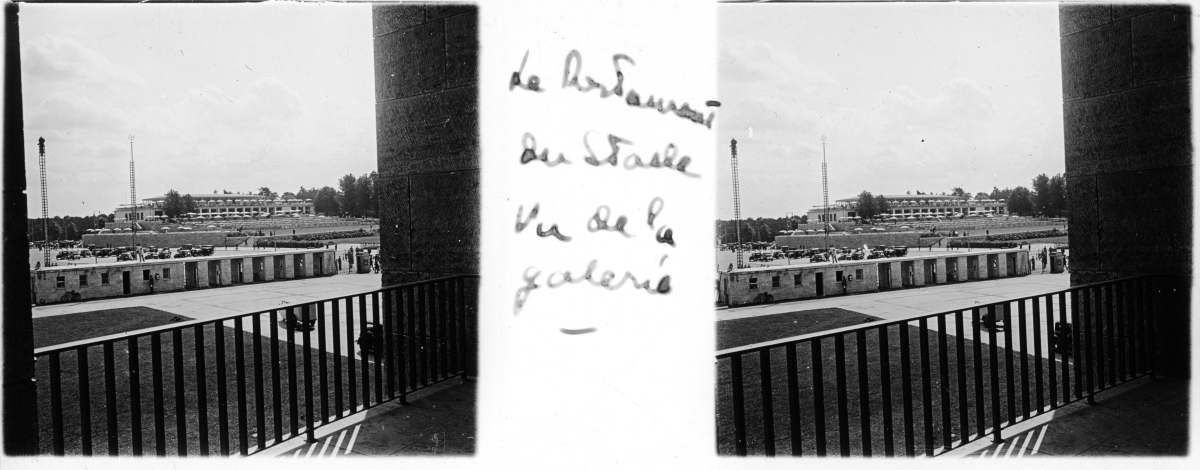 Le Restaurant
du Stade
Vu de la
galerie